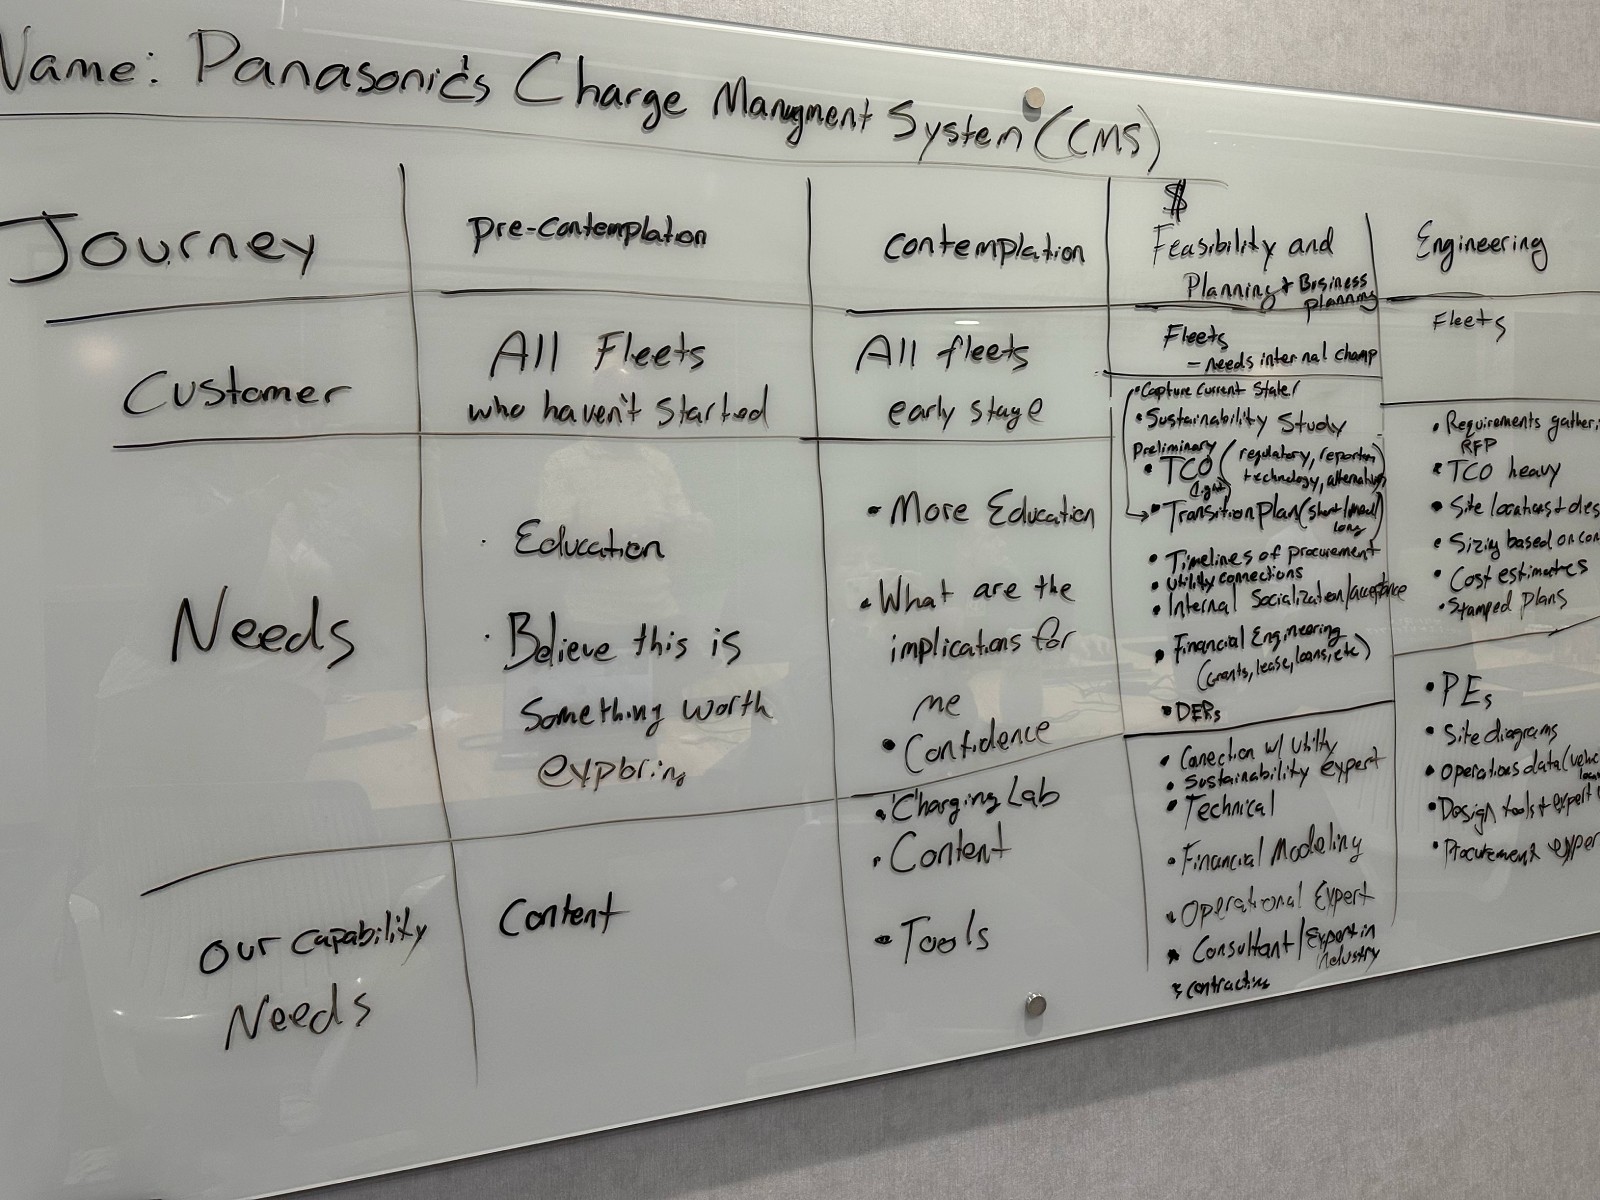 Name: Panasonic's Charge Managment System (CMS)
Journey
pre-contemplation
contemplation
$
Feasibility and
Planning + Business
planning
Engineering
Customer
All Fleets
who haven't started
All fleets
early stage
Fleets
- needs internal champ
Fleets
Needs
· Education
· Believe this is
something worth
• More Education
• What are the
implications for
me
• Confidence
• Capture current state/
• Sustainability Study
Preliminary
• TCO (regulatory, reporting
(light) technology, alternatives)
• Transition plan (short/med/
long)
• Timelines of procurement
• Utility connections
• Internal Socialization/acceptance
• Financial Engineering
(Grants, lease, loans, etc)
• DERs
• Requirements
RFP
• TCO heavy
• Site locations +
• Sizing based on
• Cost estimates
• Stamped Plans
Our capability
Needs
Content
• Charging Lab
• Content
• Tools
• Conection w/ utilty
• Sustainability expert
• Technical
• Financial Modeling
• Operational Expert
• Consultant/Expert in
industry
• contracting
• PEs
• Site diagrams
• Operations data
• Design tools +
• Procurement